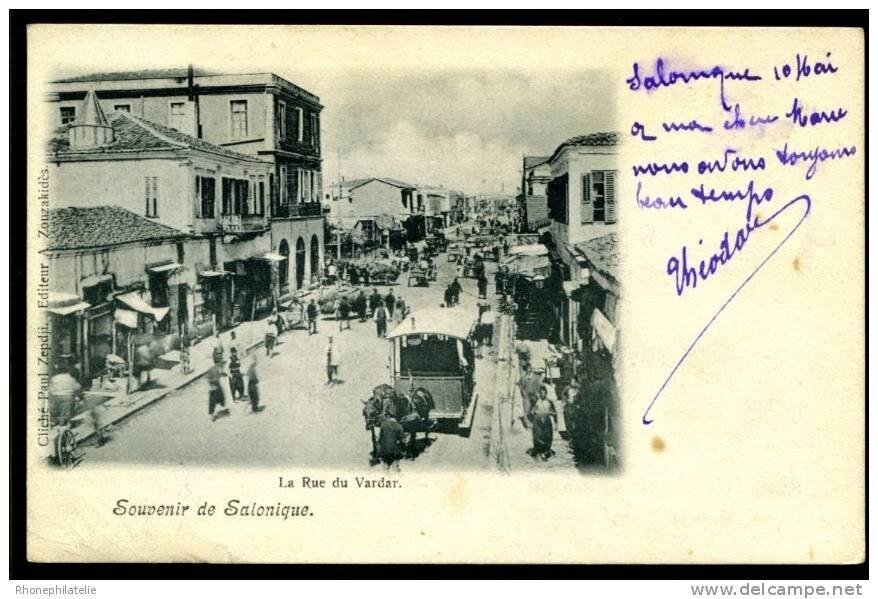 Salonique 10 Mai
mon chere Marie
nous avons toujours
beau temps
Théodore
Cliché Paul Zepdji, Editeur A Zouzakidès.
La Rue du Vardar.
Souvenir de Salonique.
Rhonephilatelie
www.delcampe.net